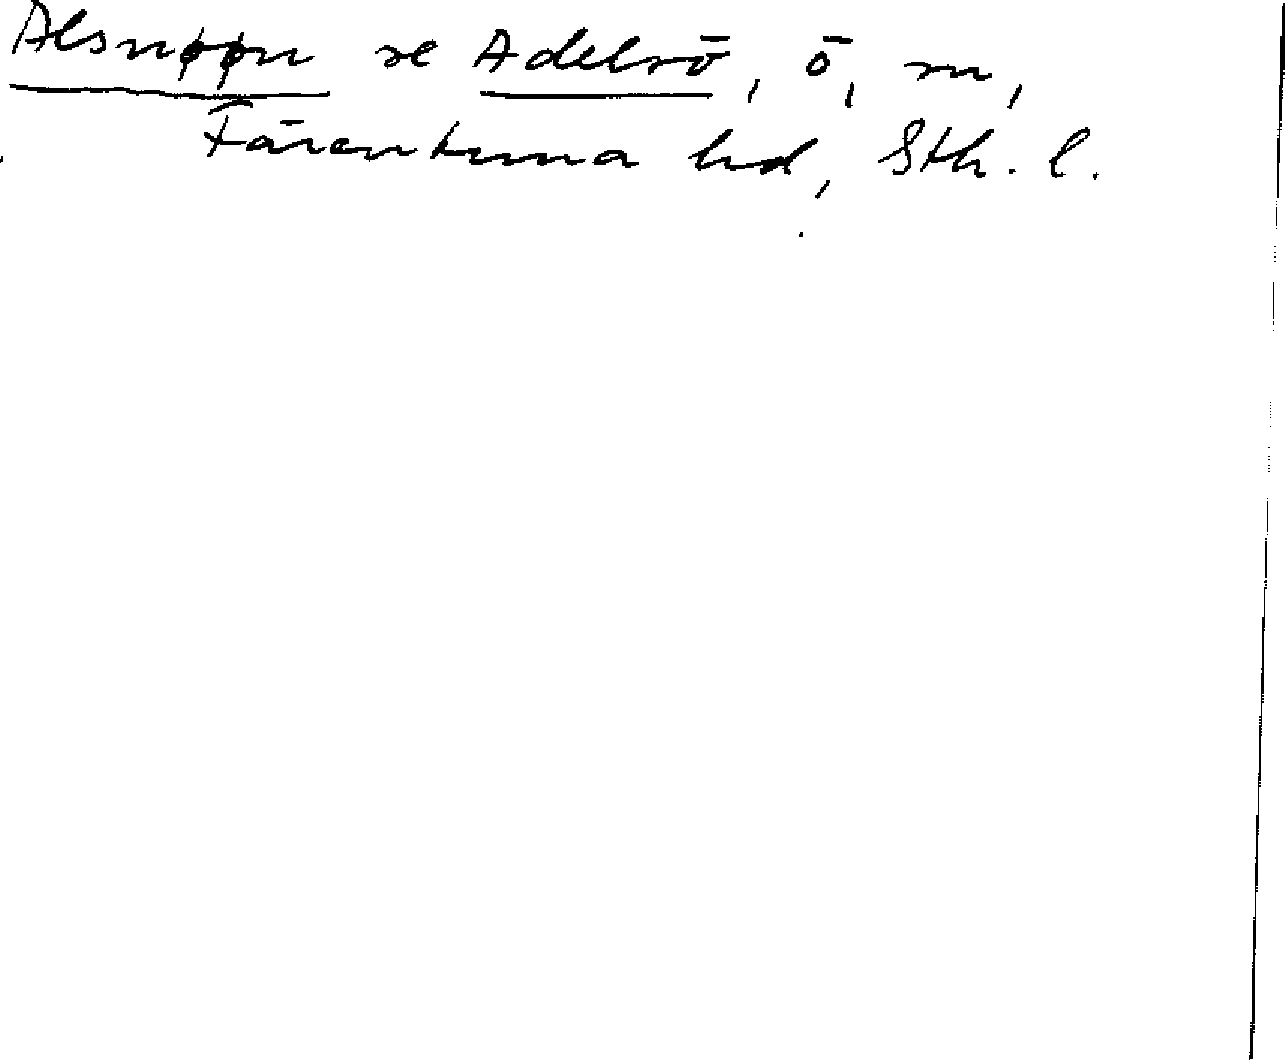 Alsnøøn se Adelsö, ö, sn,
Färentuna hd, Sth. l.